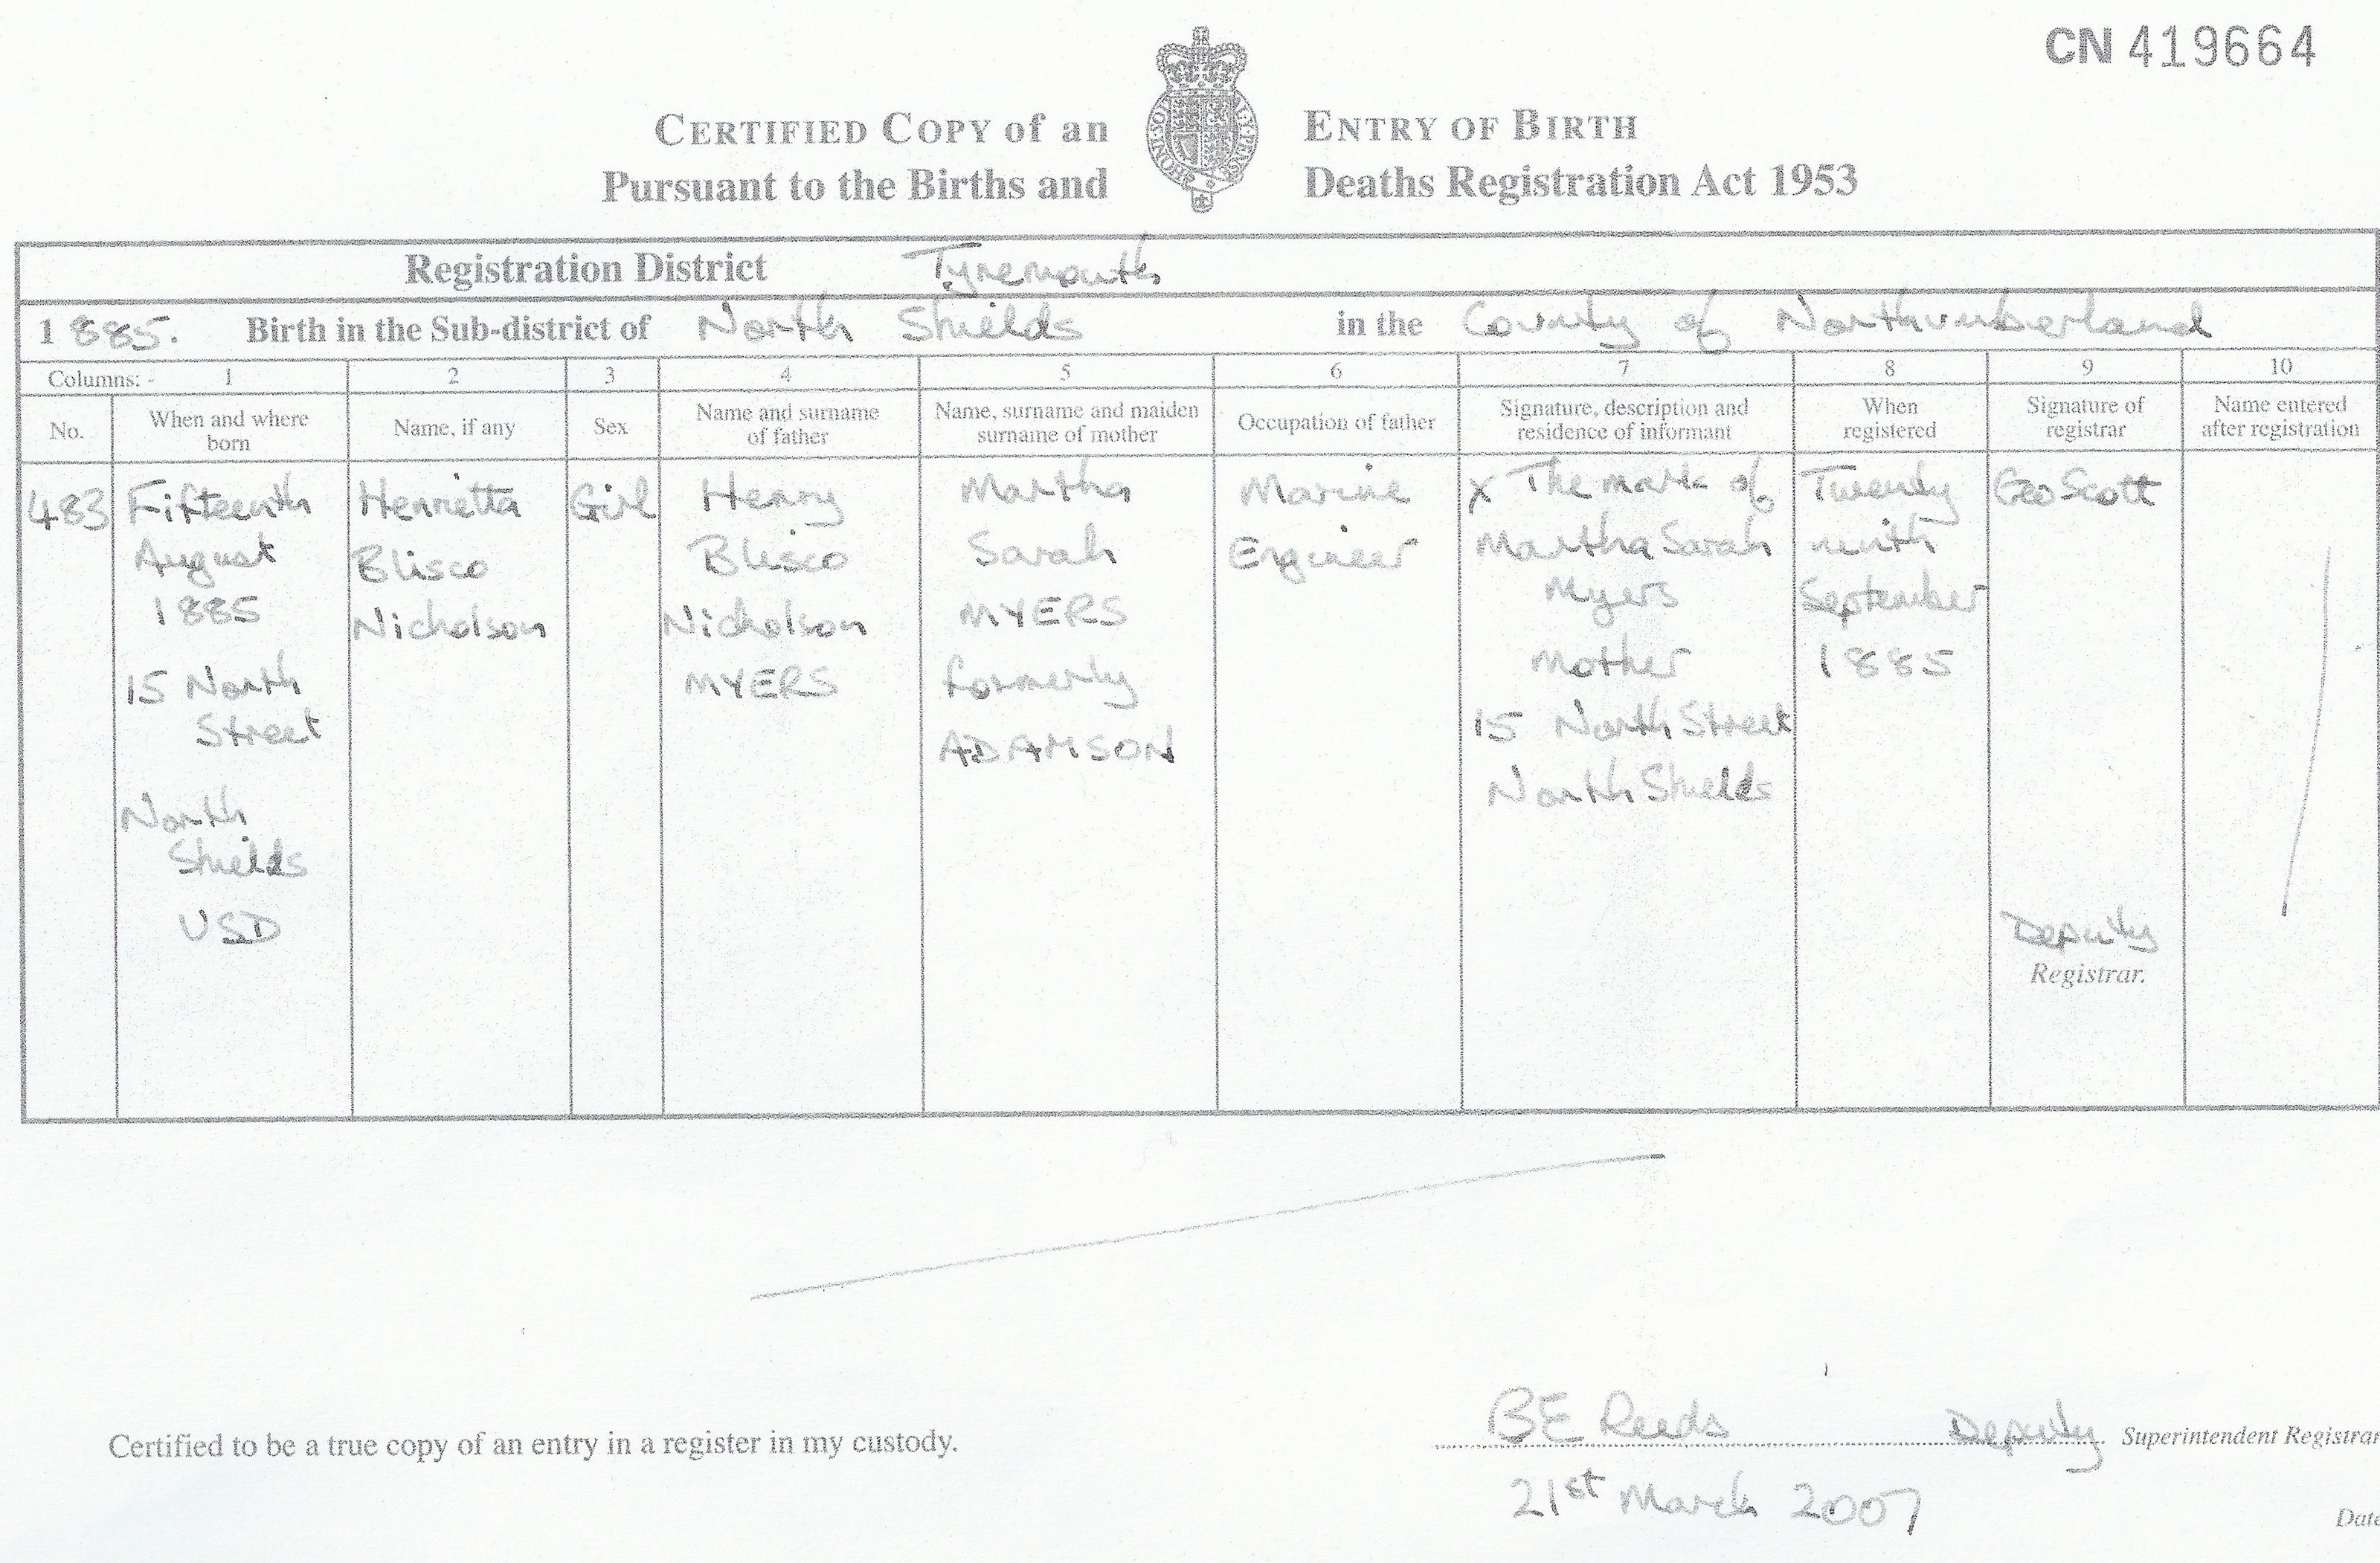 CN 419664
CERTIFIED COPY of an ENTRY OF BIRTH
Pursuant to the Births and Deaths Registration Act 1953
HONI·SOIT
Registration District Tynemouth
1885. Birth in the Sub-district of North Shields in the County of Northumberland
Columns:- 1 2 3 4 5 6 7 8 9 10
No.
When and where
born
Name, if any
Sex
Name and surname
of father
Name, surname and maiden
surname of mother
Occupation of father
Signature, description and
residence of informant
When
registered
Signature of
registrar
Name entered
after registration
483
Fifteenth
August
1885
15 North
Street
North
Shields
USD
Henrietta
Blisco
Nicholson
Girl
Henry
Blisco
Nicholson
MYERS
Martha
Sarah
MYERS
formerly
ADAMSON
Marine
Engineer
X The mark of
Martha Sarah
Myers
Mother
15 North Street
North Shields
Twenty
ninth
September
1885
Geo Scott
Deputy
Registrar.
Certified to be a true copy of an entry in a register in my custody.
BE Reeds Deputy Superintendent Registrar
21st March 2007
Date